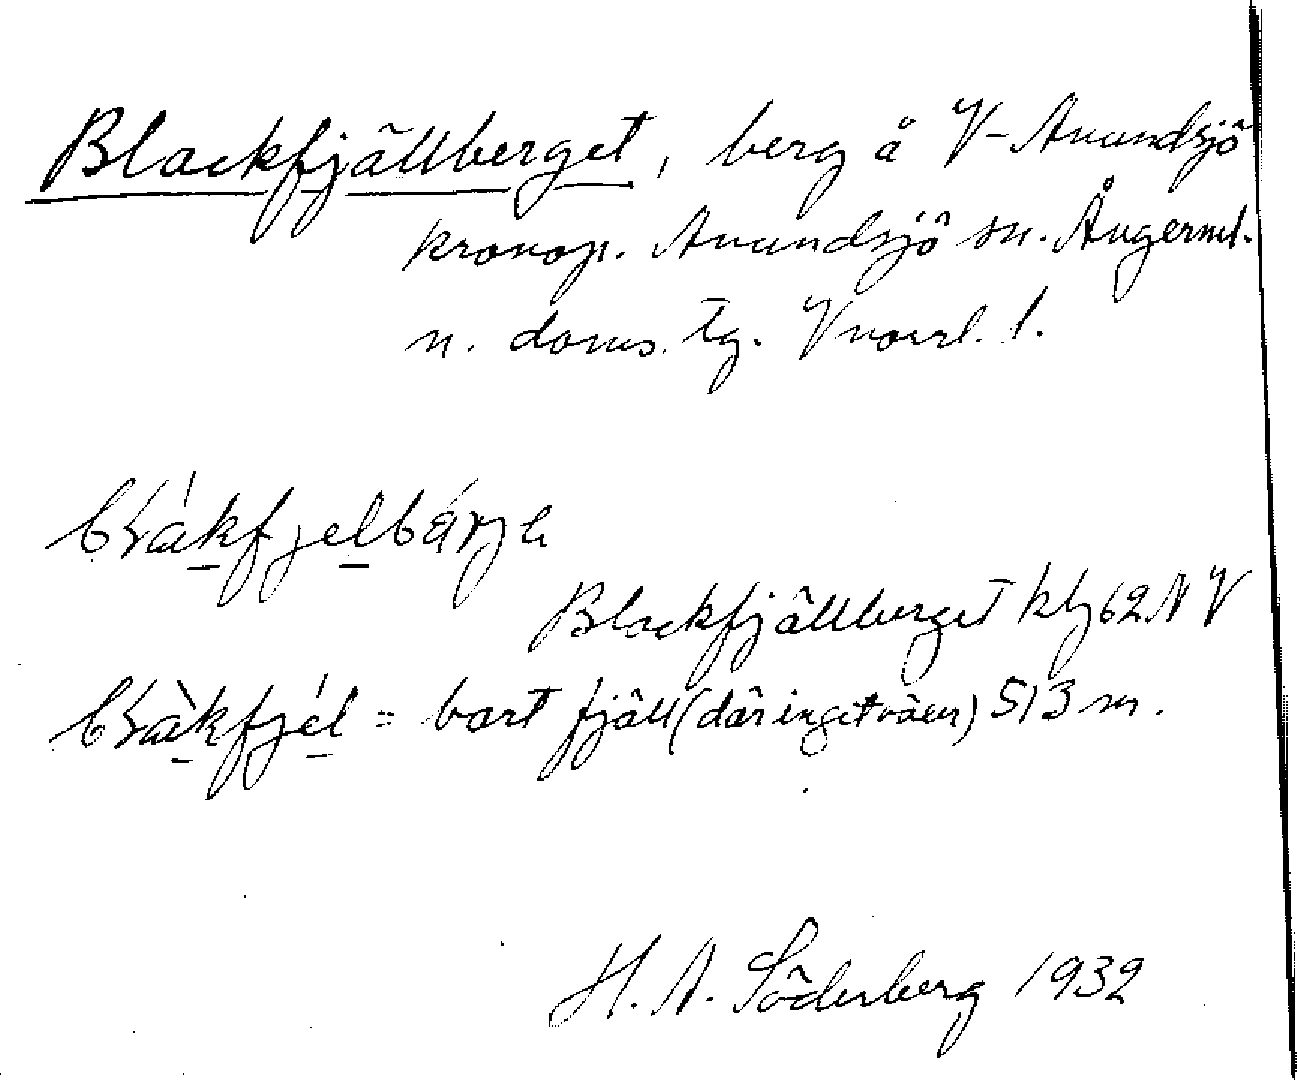 Blackfjällberget, berg å V-Anundsjö
kronop. Anundsjö sn. Ångerml.
n. doms. tg. Vnorrl. l.
Blackfjällberget kbj 62 NV
= bart fjäll (där inget växer) 513 m.
H. A. Söderberg 1932